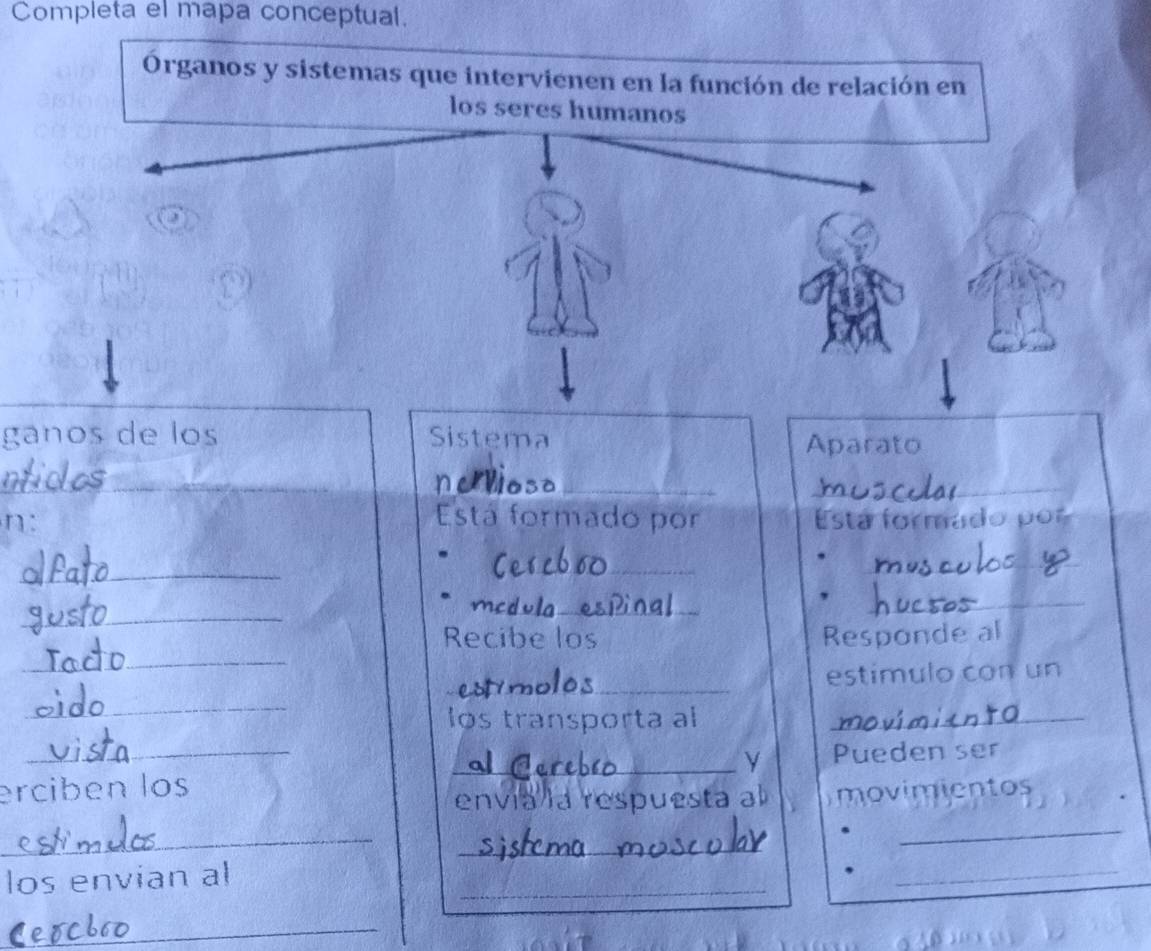 Completa el mapa conceptual.
Órganos y sistemas que intervienen en la función de relación en
los seres humanos
ganos de los
ntidos
n:
olfato
gusto
Tacto
oido
vista
erciben los
estimulos
los envian al
cerebro
Sistema
nervioso
Está formado por
• Cerebro
• medula espinal
Recibe los
estimolos
los transporta al
al Cerebro y
envia la respuesta al
sistema moscolar
Aparato
muscular
Está formado por
• musculos y
• huesos
Responde al
estimulo con un
movimiento
Pueden ser
movimientos
•
•